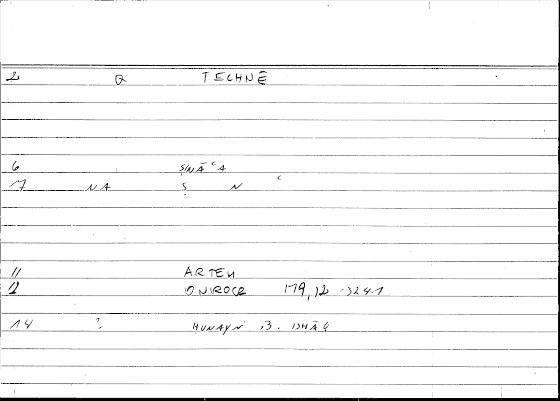 2 Q TECHNĒ
6 ṢINĀʿA
7 NA Ṣ N ʿ
11 ARTEM
12 ONIROCR 179,12 -324.1
14 ? ḤUNAYN .B. ISḤĀQ